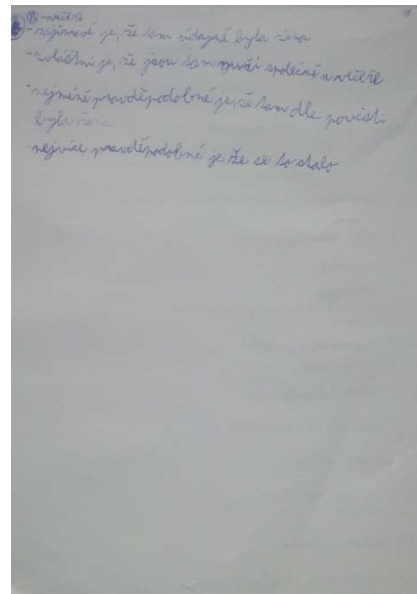 -zajímavé je, že tam údajně byla žena
-zvláštní je, že jsou tam muži společně na
-nejméně pravděpodobné je že tam dle pověsti
byla žena
-nejvíce pravděpodobné je že se to stalo